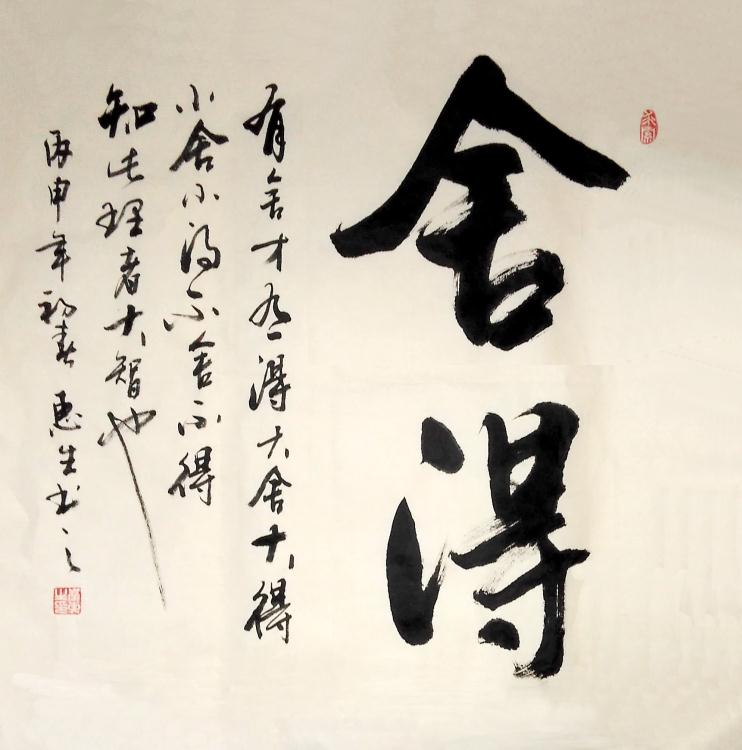 舍得
有舍才有得大舍大得
小舍小得不舍不得
知此理者大智也
丙申年初春惠生书之